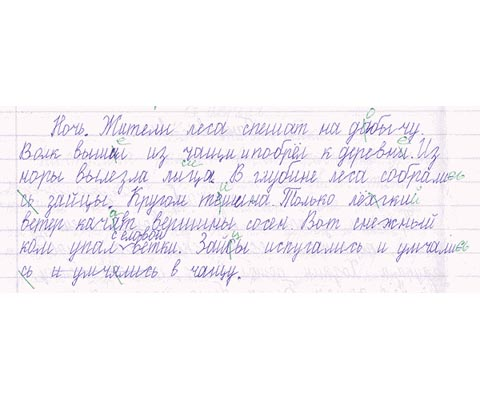 Ночь. Жители леса спешат на добычу.
Волк вышел из чащи ипобрёл к деревне. Из
норы вылезла лица. В глубине леса собрались
сь зайцы. Кругом тишина. Только лёхгкий
ветер качят вершины сосен. Вот снежный
ком упал с еловой ветки. Зайцы испугались и умчались
сь и умчялись в чащу.